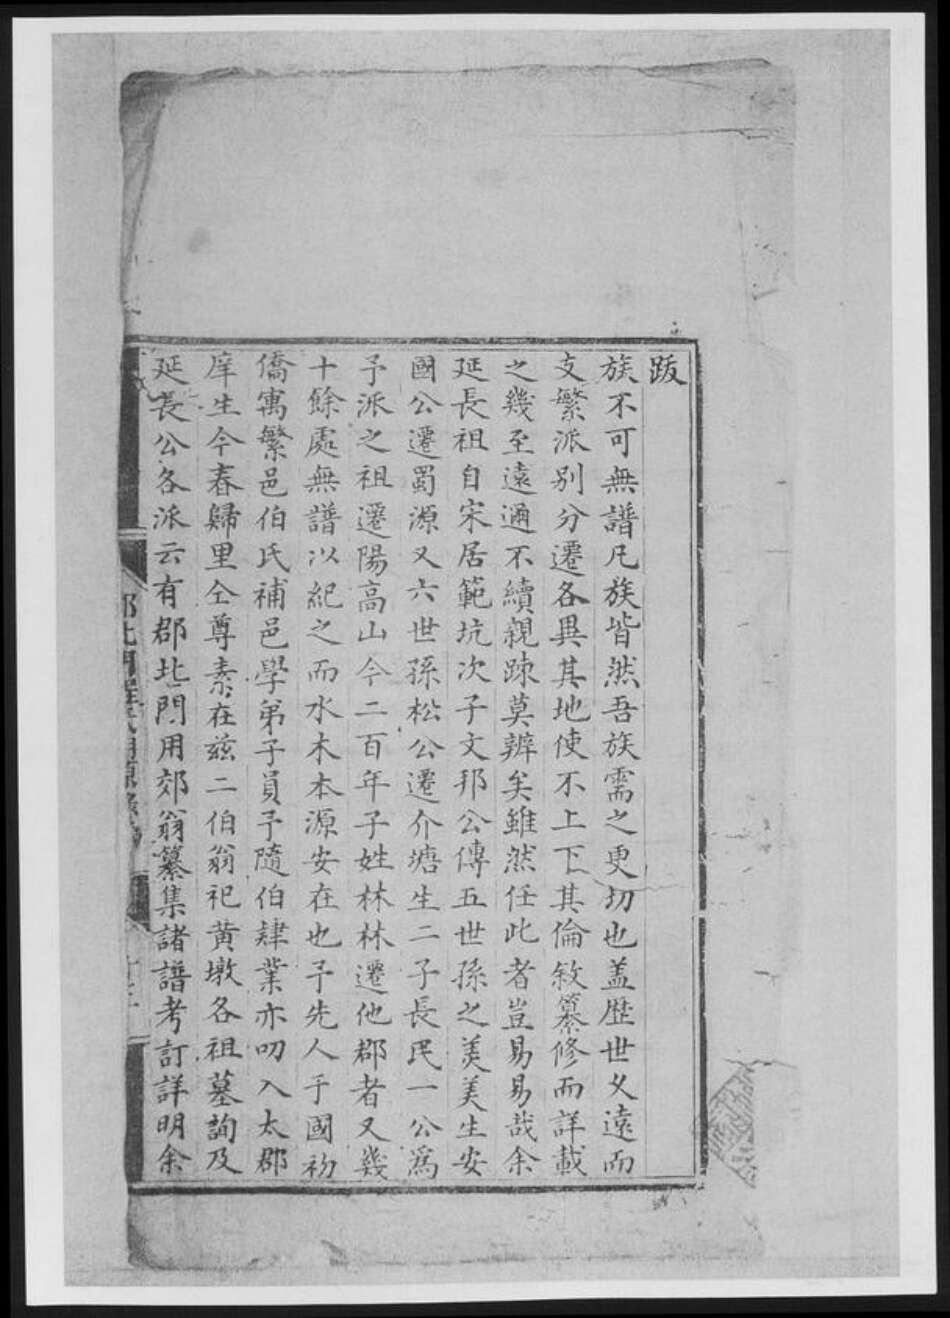 跋
族不可無譜凡族皆然吾族需之更切也盖歴世久遠而
支繁派别分遷各異其地使不上下其倫敘纂修而詳載
之幾至遠邇不續親踈莫辨矣雖然任此者豈易易哉余
延長祖自宋居範坑次子文邦公傳五世孫之美美生安
國公遷蜀源又六世孫松公遷介塘生二子長民一公爲
予派之祖遷陽高山今二百年子姓林林遷他郡者又幾
十餘處無譜以紀之而水木本源安在也予先人于國初
僑寓繁邑伯氏補邑學弟子員予隨伯肄業亦叨入太郡
庠生今春歸里仝尊素在兹二伯翁祀黄墩各祖墓詢及
延長公各派云有郡北門用郊翁纂集諸譜考訂詳明余
郡北門程氏